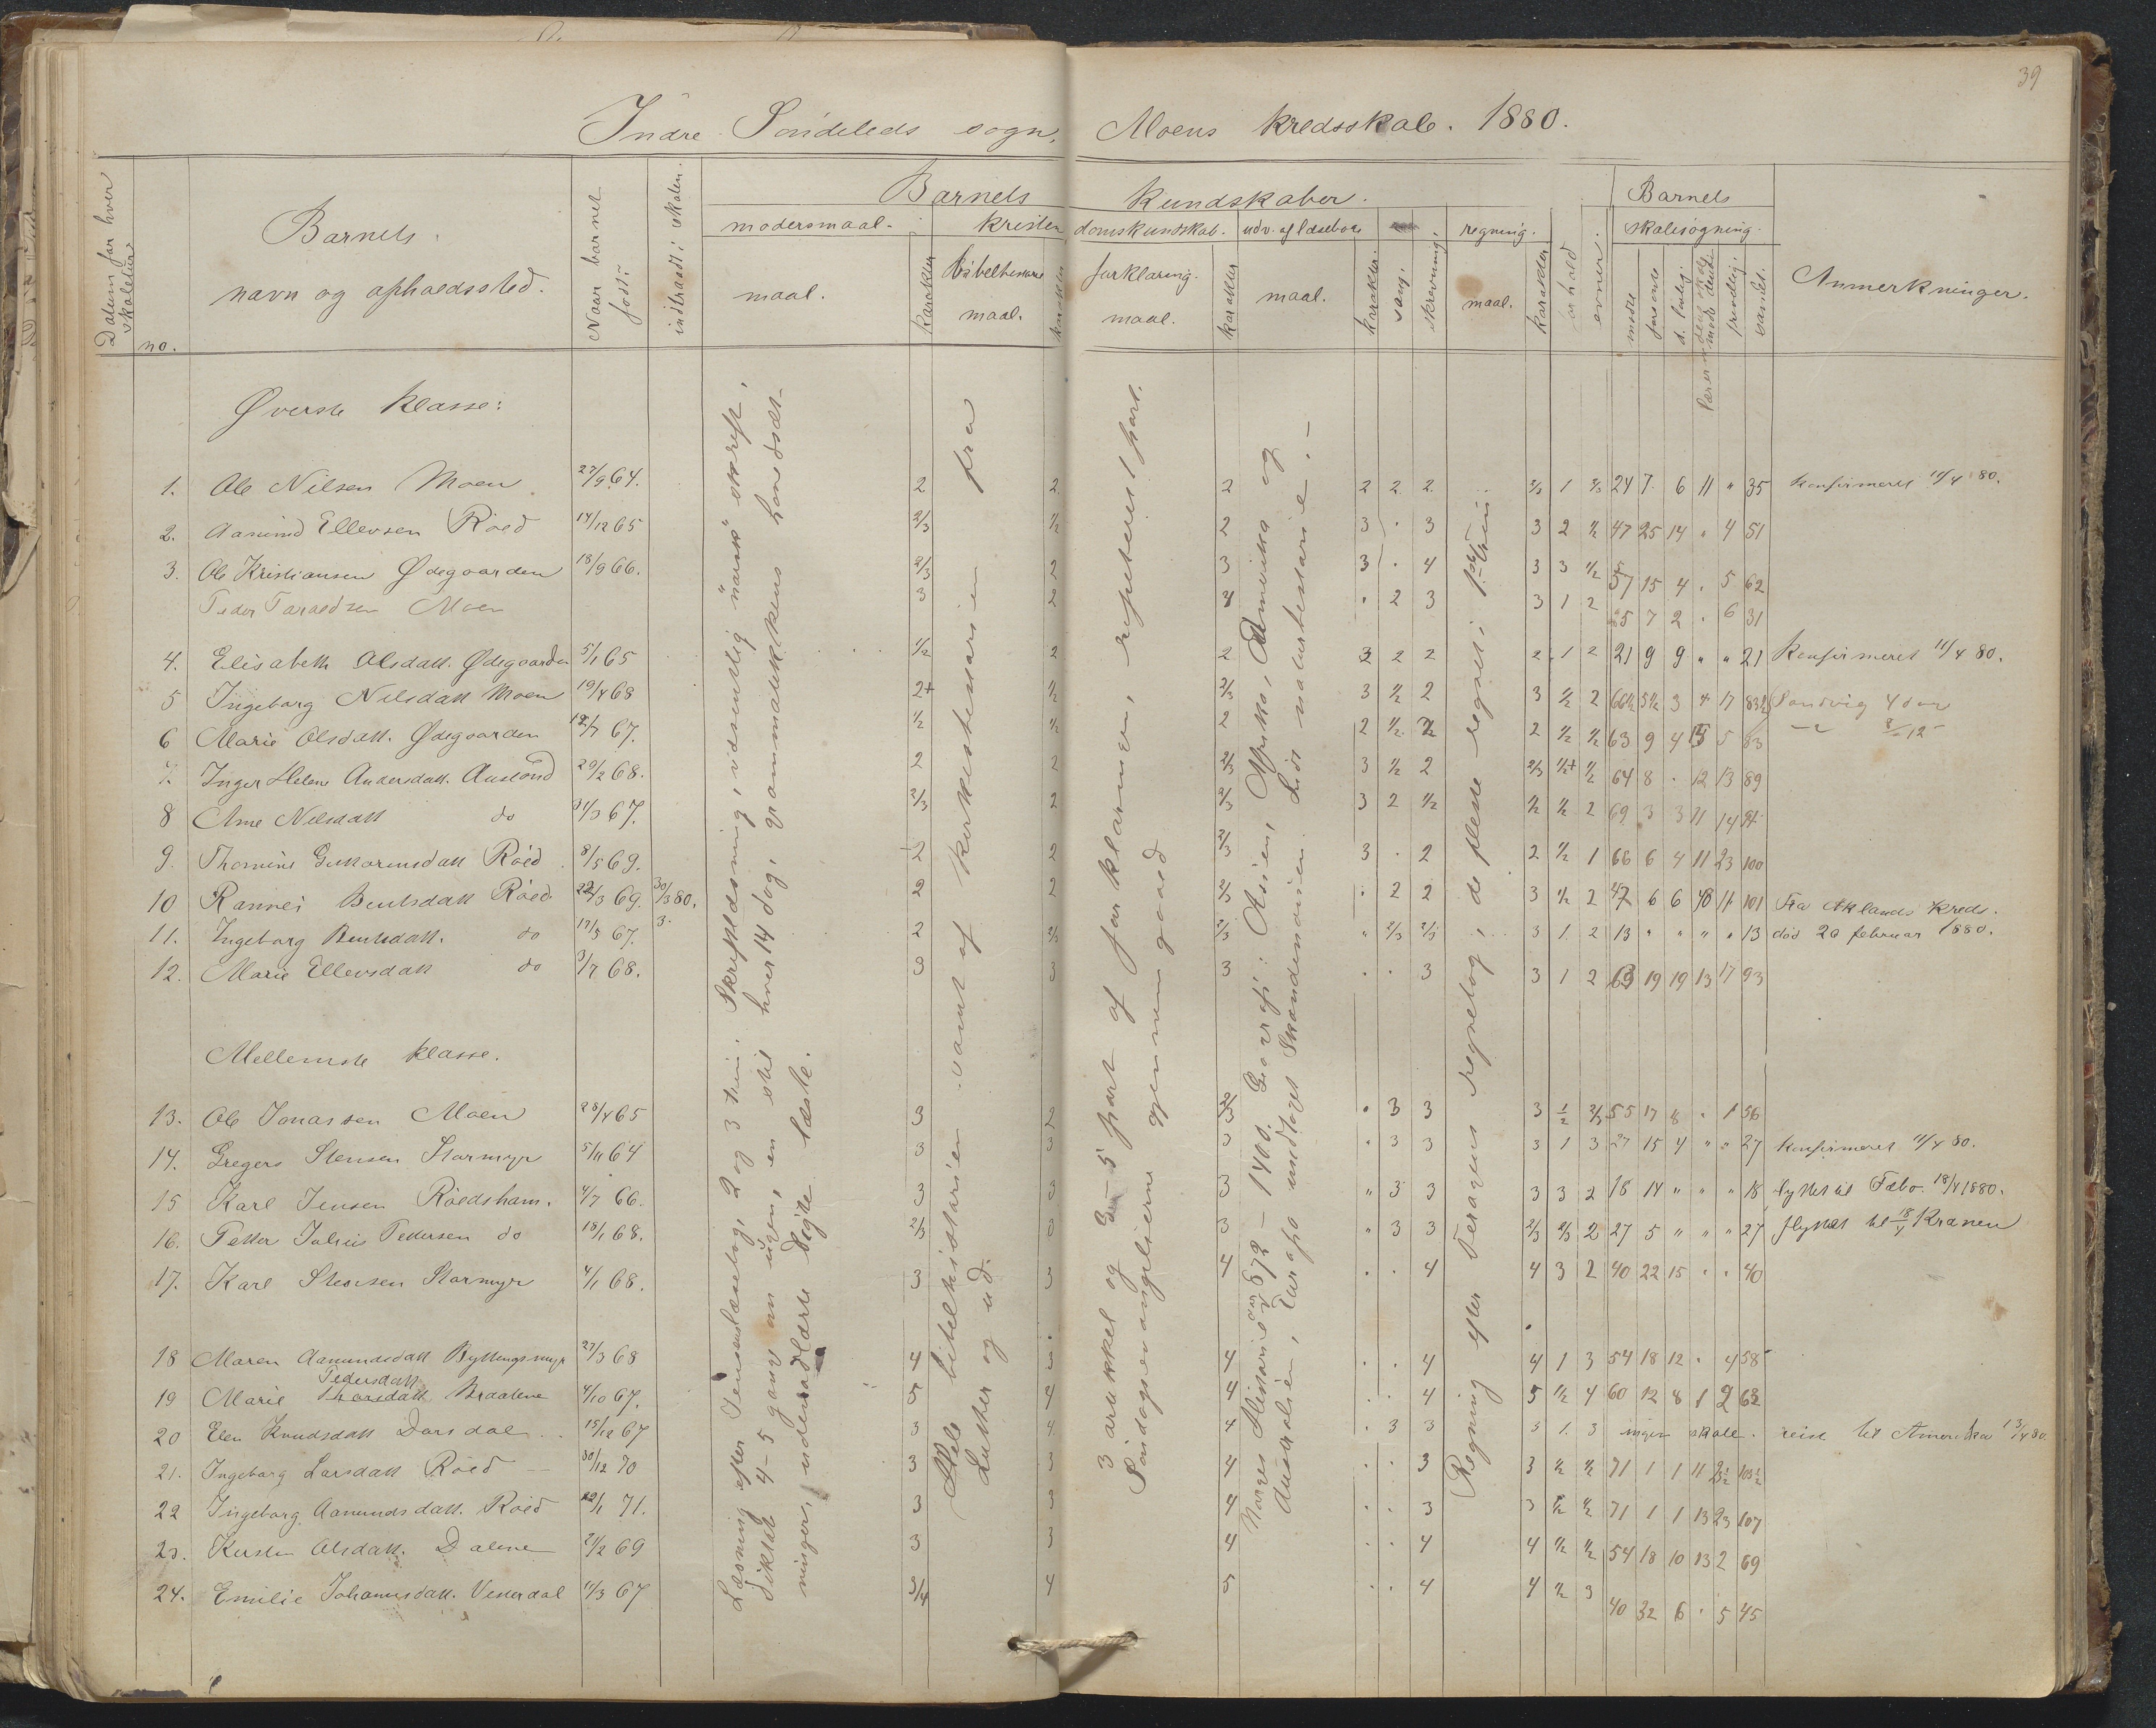 39
Indre Söndeleds sogn. Moens kredsskole. 1880.
Datum for hver skoletur
no.
Barnets navn og opholdssted.
Naar barnet født?
indtraadt i skolen.
Barnets kundskaber.
modersmaal.
maal.
karakter
kristendomskundskab.
bibelhistorie
maal.
karakter
forklaring.
maal.
karakter
udv. af læsebog
maal.
karakter.
sang.
skrivning.
regning.
maal.
karakter
forhold
evner.
Barnets skolesögning.
mødt
forsømte
d. lovlig.
frivillig.
samlet.
Anmerkninger.
Øverste klasse:
1. Ole Nilsen Moen 27/9 64. 2 2 2 2 2 2 2/3 1 2/3 24 7 6 11 " 35 Konfirmeret 11/4 80.
2. Aanund Ellevsen Röed 14/12 65 2/3 1/2 2 3 . 3 3 2 1/2 47 25 14 " 4 51
3. Ole Kristiansen Ødegaarden 18/9 66. 2/3 2 3 3 . 4 3 3 1/2 57 15 4 . 5 62
Peder Taraldsen Moen 3 2 . 2 3 3 1 2 25 7 2 . 6 31
4. Elisabeth Olsdatt. Ødegaarden 5/1 65 1/2 2 2 2 2 2 1 2 21 9 9 " " 21 Konfirmeret 11/4 80.
5 Ingeborg Nilsdatt Moen 19/4 68 2+ 1/2 2/3 3 1/2 2 3 1/2 2 66½ 5½ 3 17 83½ Sandvig 4 dar
6 Marie Olsdatt. Ødegaarden 12/7 67. 1/2 1/2 2 2 1/2 2 2 1/2 1/2 63 9 4 15 5 83
7. Inger Helene Andersdatt. 29/2 68. 2 2 2/3 3 1/2 2 2/3 1/2+ 1/2 64 8 . 12 13 89
8 Ane Nilsdatt do 31/3 67. 2/3 2 2/3 3 2 1/2 1/2 1/2 2 69 3 3 11 14
9. Thomine Guttormsdatt Röed 8/5 69. 2 2 2/3 3 . 2 2 1/2 1 66 6 4 11 23 100
10 Rannei Bentsdatt Röed 22/3 69. 30/3 80. 2 2 2/3 . 2 2 3 1/2 2 47 6 6 101 Fra Aklands Kreds.
11. Ingeborg Bentsdatt. do 17/5 67. 3. 2 2/3 2/3 " 2/3 2/3 3 1 2 13 " " " " 13 död 20 februar 1880.
12. Marie Ellevsdatt do 3/7 68. 3 3 3 . . 3 3 1 2 63 19 19 13 17 93
Mellemste klasse.
13. Ole Jonassen Moen 28/4 65 3 2 2/3 . 3 3 3 1/2 2/3 55 17 8 . 1 56
14. Gregers Stensen Stormyr 5/11 64 3 3 3 " 3 3 3 1 3 27 15 4 " " 27 Konfirmeret 11/4 80.
15 Karl Jensen Röedsham. 4/7 66. 3 3 3 " 3 3 3 3 2 18 14 " " " 18 flyttet til Fæbo. 18/4 1880.
16. Petter Julius Pettersen do 18/1 68. 2/3 3 3 " 3 3 2/3 2/3 2 27 5 " " " 27 flyttet til 18/4 Kranen
17. Karl Stensen Stormyr 4/1 68. 3 3 4 . . 4 4 3 2 40 22 15 . . 40
18 Maren Aanundsdatt Byttingsmyr 27/3 68 4 3 4 . . 4 4 1 3 54 18 12 . 4 58
Pedersdatt
19 Marie Thorsdatt Braatene 4/10 67. 5 4 4 . 4 5 1/2 4 60 12 8 1 2 63
20 Elen Knudsdatt Dorsdal 15/12 67 3 4 4 . 3 3 3 1 3 ingen skole. reist til Amerika 13/4 80.
21. Ingeborg Larsdatt Röed 30/12 70 3 3 4 . . 3 3 1/2 1/2 71 1 1 11
22 Ingeborg Aanundsdatt. Röed 22/1 71. 3 3 4 . . 3 3 1/2 1/2 71 1 1 13 23 107
23. Kirsten Olsdatt. Dalene 21/2 69 3 3 4 . . 4 4 1/2 1/2 54 18 10 13 2 69
24. Emilie Johannesdatt. Vesterdal 11/3 67 3/4 4 5 . . 4 4 1/2 3 40 32 6 . 5 45
Læsning efter Jensens læsebog, 2 og 3 trin. Skriftlæsning, væsentlig "norsk" skrift,
diktat 4-5 gang om ugen, en stil hver 14 dag, grammatikkens hovedsæt-
ninger, udenadlærte digte læste.
Hele bibelhistorien samt af kirkehistorien fra
Luther og ud.
3 artikkel og 3-5 part af forklaringen, repeteret 1 part.
Söndagsevangelierne gjennemgaaed
Norges Historie 872-1400. Geografi: Asien, Afrika, Amerika og
Australien, Europa undtaget Skandinavien. Lidt naturhistorie.
Regning efter Veraas regnebog, de fleste regnet i 1ste trin.